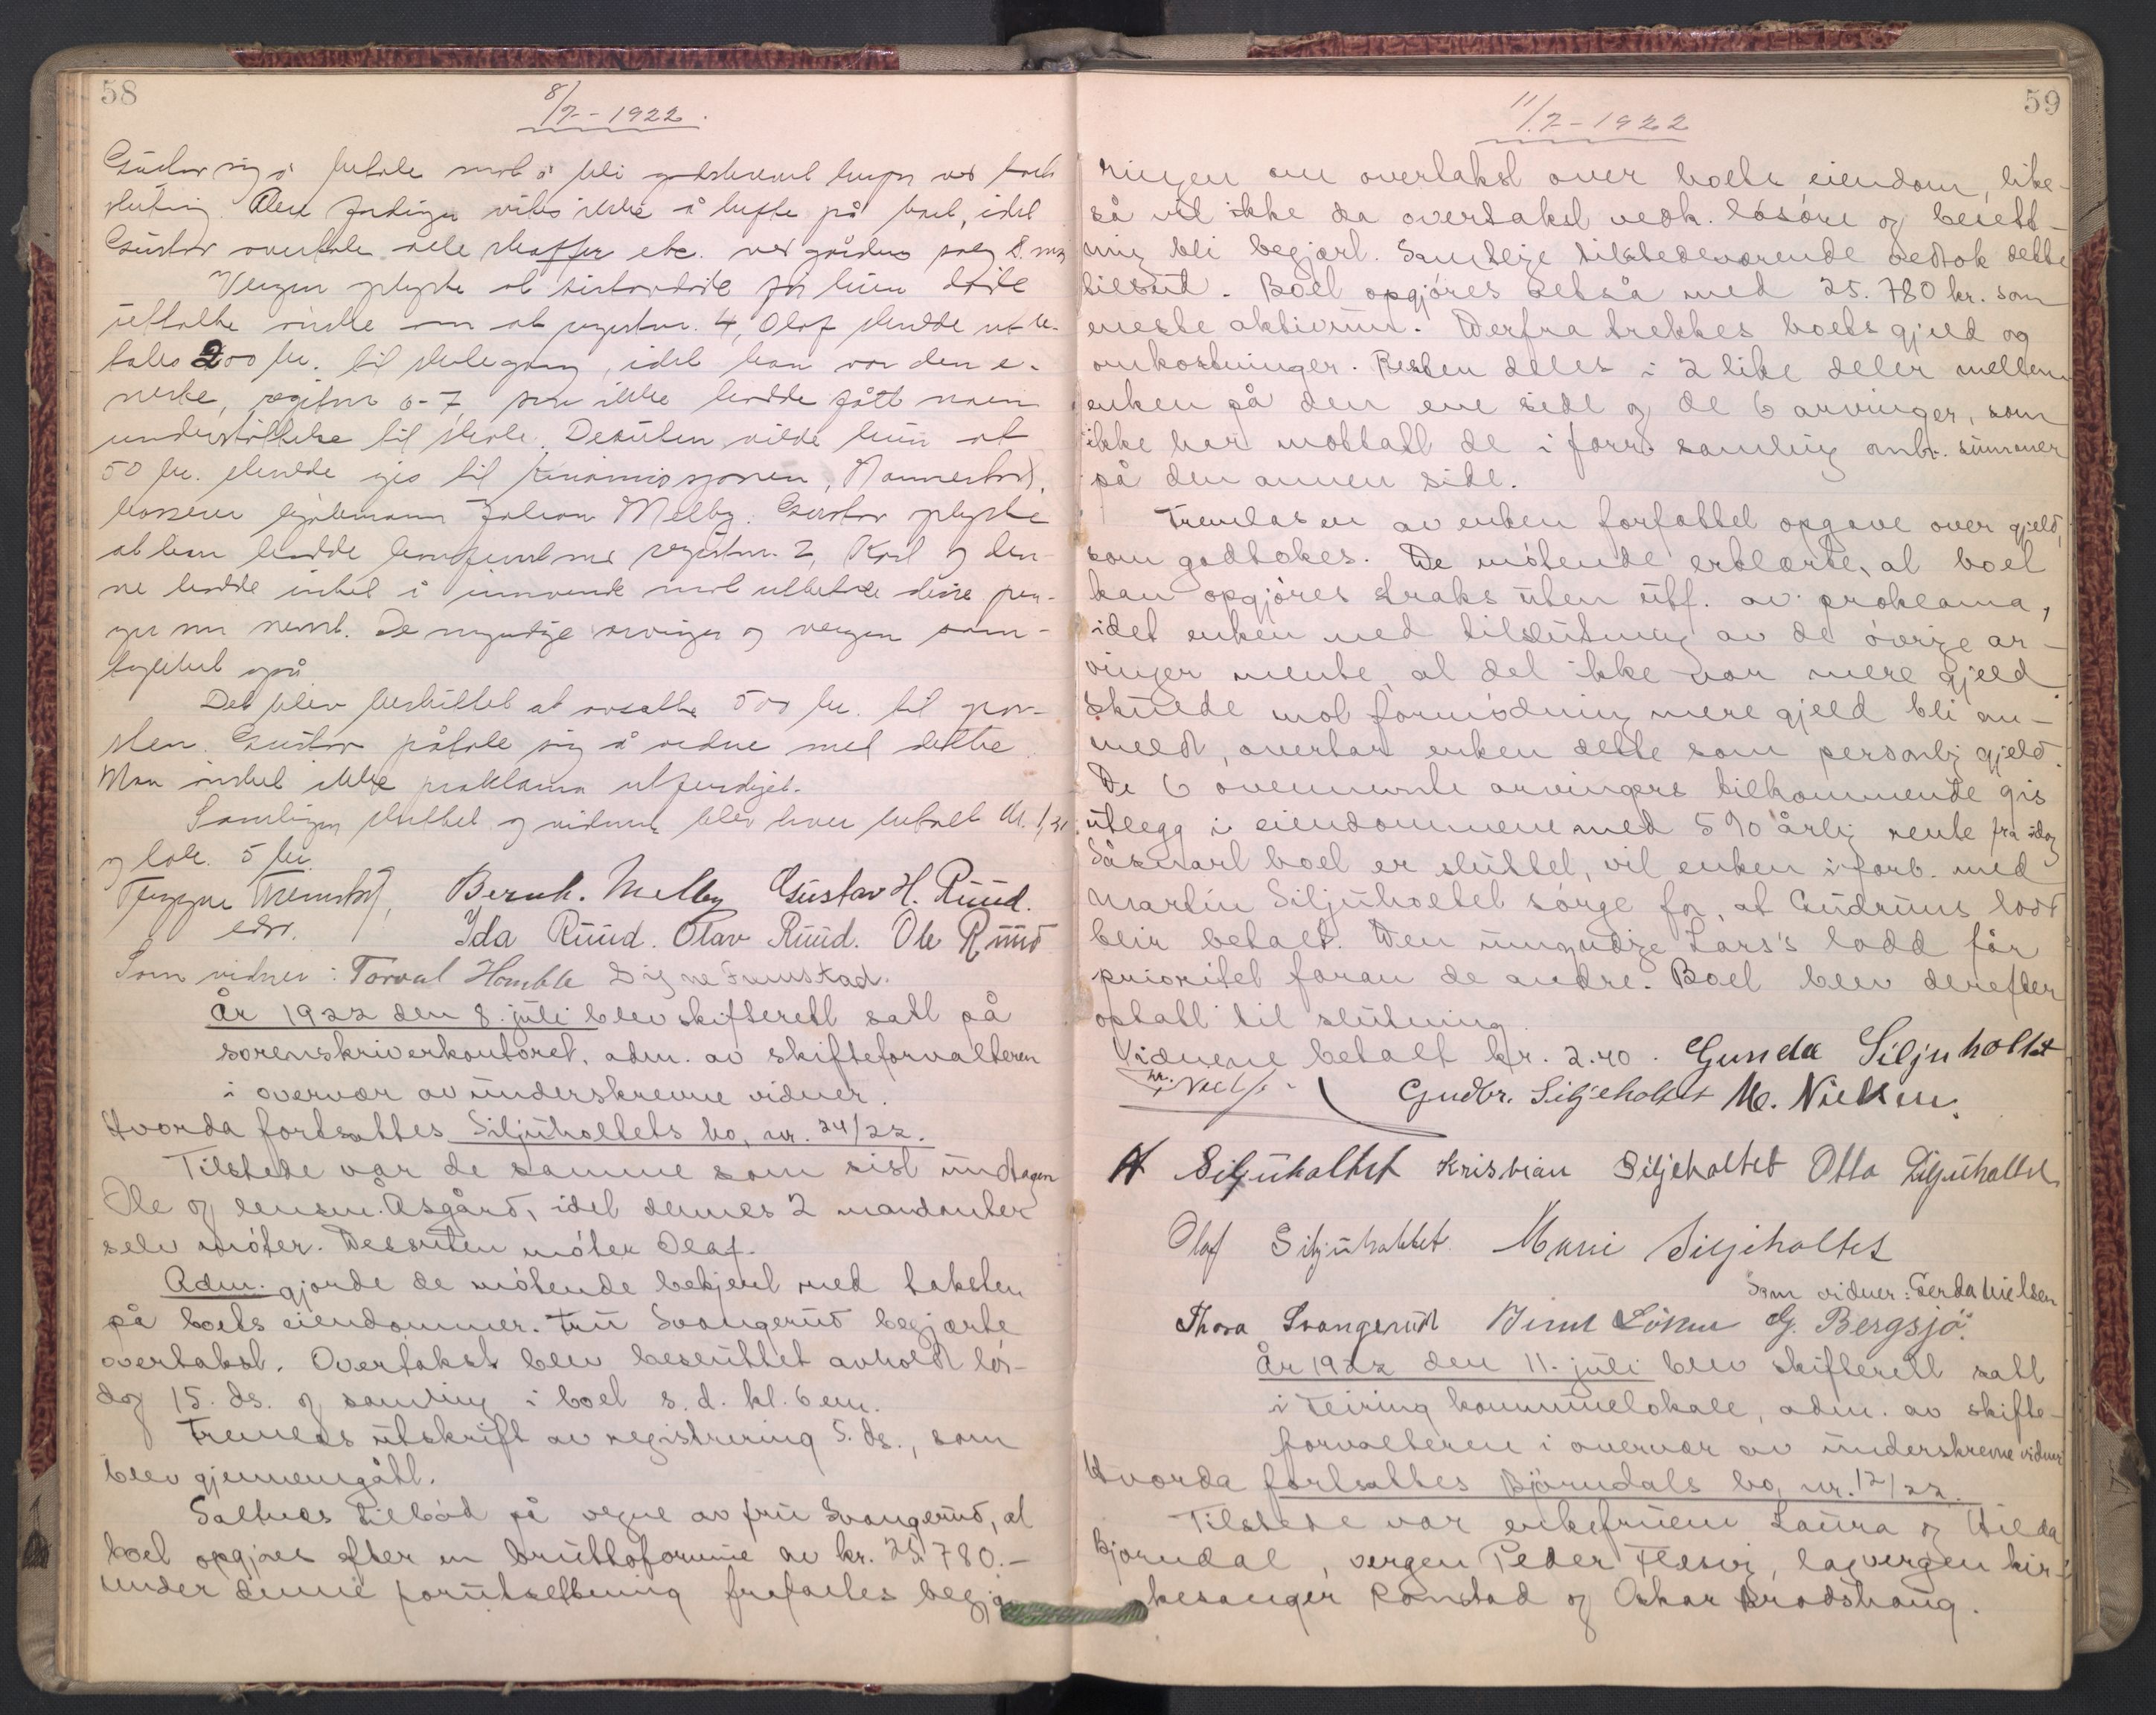 58
8/7-1922.
Gustav sig å betale mot å bli godskrevet
slutning. Den å hefte på boet, idet
Gustav overtok alle skatter etc. ved gårdens salg 8. mai
Vergen oplyste at før hun døde
uttalte ønske om at registernr. 4, Olaf skulde utbe-
tales 200 kr. til skolegang, idet han var den e-
neste, 6-7, som ikke hadde fått noen
understøttelse til skole. Desuten vilde hun at
50 kr. skulde gis til Kinamisjonen,
kasserer Johan Melby. Gustav oplyste
at han hadde konferert med registernr. 2, Karl og den-
ne hadde intet å innvende mot utbetale disse pen-
ger nu nevnt. De myndige arvinger og vergen sam-
tykket også
Det blev besluttet at avsette 500 kr. til grav-
sten. Gustav påtok sig å ordne med dette.
Man ønsket ikke proklama utferdiget.
Samlingen sluttet og vidnene blev hver betalt kr. 1,20
og lok. 5 kr.
Bernh. Melby Gustav H. Ruud.
edsv. Ida Ruud. Olav Ruud. Ole Ruud
Som vidner: Torval Homble Signe Frenstad.
År 1922 den 8. juli blev skifterett satt på
sorenskriverkontoret, adm. av skifteforvalteren
i overvær av underskrevne vidner.
Hvorda fortsattes Siljuholtets bo, nr. 24/22.
Tilstede var de samme som sist undtagen
Ole og lensm. Asgård, idet dennes 2 mandanter
selv møter. Dessuten møter Olaf.
Adm. gjorde de møtende bekjent med taksten
på boets eiendommer. Fru Svangerud begjærte
overtakst. Overtakst blev besluttet avholdt lør-
dag 15. ds. og samling i boet s. d. kl. 6 em.
Fremlas utskrift av registrering 5. ds., som
blev gjennemgått.
Saltnes tilbød på vegne av fru Svangerud, at
boet opgjøres efter en bruttoformue av kr. 25.780.-
under denne forutsetning frafaltes begjæ-
59
11/7-1922
ringen om overtakst over boets eiendom, like-
så vil ikke da overtakst vedk. løsøre og besett-
ning bli begjært. Samtlige tilstedeværende vedtok dette
tilbud. Boet opgjøres altså med 25.780 kr. som
eneste aktivum. Derfra trekkes boets gjeld og
omkostninger. Resten deles i 2 like deler mellem
enken på den ene side og de 6 arvinger, som
ikke har mottatt de i forr. samling omh. summer
på den annen side.
Fremlas en av enken forfattet opgave over gjeld,
som godtokes. De møtende erklærte, at boet
kan opgjøres straks uten utf. av proklama,
idet enken med tilslutning av de øvrige ar-
vinger mente, at det ikke var mere gjeld.
Skulde mot formodning mere gjeld bli an-
meldt, overtar enken dette som personlig gjeld.
De 6 ovennevnte arvingers tilkommende gis
utlegg i eiendommene med 5% årlig rente fra idag
Såsnart boet er sluttet, vil enken i forb. med
Martin Siljuholtet sørge for, at Gudruns lodd
blir betalt. Den umyndige Lars's lodd får
prioritet foran de andre. Boet blev derefter
optatt til slutning.
Vidnene betalt kr. 2.40. Gunda Siljuholtet
Gudbr. Siljeholtet M. Nielsen.
A Siljuholtet Kristian Siljeholtet Otto Siljuholtet
Olaf Siljuholtet Marie Siljeholtet
Som vidner: Gerda Nielsen
Thora Svangerud G. Bergsjø.
År 1922 den 11. juli blev skifterett satt
i Feiring kommunelokale, adm. av skifte-
forvalteren i overvær av underskrevne vidner
Hvorda fortsattes Bjørndals bo, nr. 12/22.
Tilstede var enkefruene Laura og Hilda
Bjørndal, vergen Peder Flesvig, lagvergen kir-
kesanger Rønstad og Oskar Brodshaug.